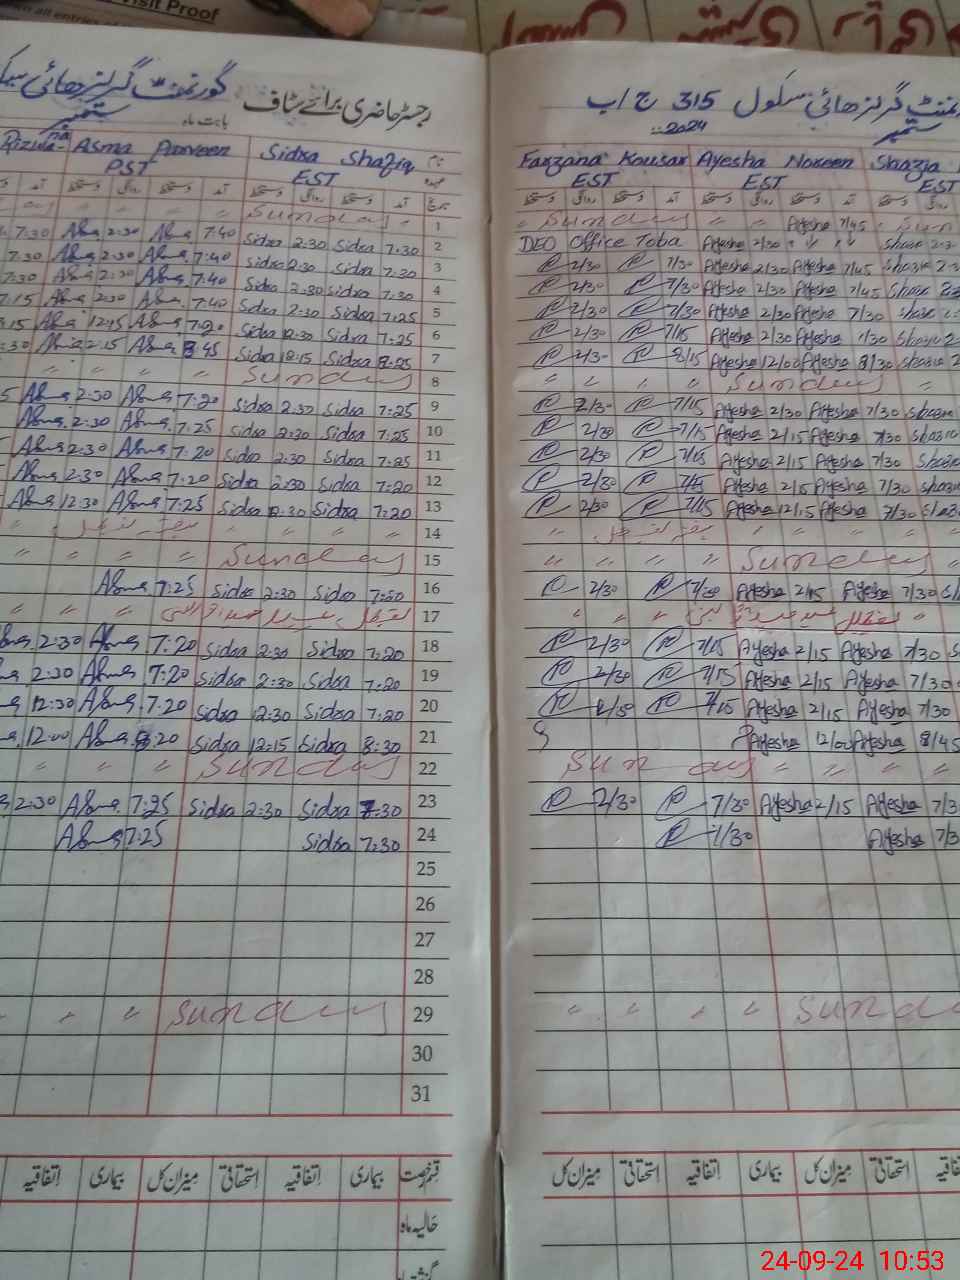 Visit Proof
گورنمنٹ گرلز ہائی
رجسٹر حاضری برائے سٹاف
بابت ماہ ستمبر
Asma Parveen Sidra Shafiq
PST EST
Sunday 1
7:30 Asma 2:30 Asma 7:40 Sidra 2:30 Sidra 7:30 2
7:30 Asma 2:30 Asma 7:40 Sidra 2:30 Sidra 7:30 3
7:30 Asma 2:30 Asma 7:40 Sidra 2:30 Sidra 7:30 4
7:15 Asma 2:30 Asma 7:40 Sidra 2:30 Sidra 7:25 5
Asma 12:15 Asma 7:20 Sidra 12:30 Sidra 7:25 6
Asma 12:15 Asma 8:45 Sidra 12:15 Sidra 8:25 7
" " " " Sunday 8
Asma 2:30 Asma 7:20 Sidra 2:30 Sidra 7:25 9
Asma 2:30 Asma 7:25 Sidra 2:30 Sidra 7:25 10
Asma 2:30 Asma 7:20 Sidra 2:30 Sidra 7:25 11
Asma 2:30 Asma 7:20 Sidra 2:30 Sidra 7:20 12
Asma 12:30 Asma 7:25 Sidra 12:30 Sidra 7:20 13
" " " " 14
" " " " Sunday 15
Asma 7:25 Sidra 2:30 Sidra 7:30 16
" " " تعطیل عید میلاد النبی 17
2:30 Asma 7:20 Sidra 2:30 Sidra 7:20 18
2:30 Asma 7:20 Sidra 2:30 Sidra 7:20 19
12:30 Asma 7:20 Sidra 12:30 Sidra 7:20 20
12:00 Asma 8:20 Sidra 12:15 Sidra 8:30 21
" " " Sunday 22
2:30 Asma 7:25 Sidra 2:30 Sidra 7:30 23
Asma 7:25 Sidra 7:30 24
25
26
27
28
" " " Sunday 29
30
31
قسم رخصت بیماری اتفاقیہ استحقاقی میزان کل بیماری اتفاقیہ
حالیہ ماہ
گورنمنٹ گرلز ہائی سکول 315 ج/ب
ستمبر 2024
Farzana Kousar Ayesha Noreen Shazia
EST EST EST
" Sunday " " Ayesha 7/45
DEO Office Toba Ayesha 2/30 " " " Shazia
2/30 7/30 Ayesha 2/30 Ayesha 7/45 Shazia
2/30 7/30 Ayesha 2/30 Ayesha 7/45 Shazia
2/30 7/30 Ayesha 2/30 Ayesha 7/30 Shazia
2/30 7/15 Ayesha 2/30 Ayesha 7/30 Shazia
8/15 Ayesha 12/00 Ayesha 8/30 Shazia
" " " " Sunday "
2/30 7/15 Ayesha 2/30 Ayesha 7/30 Shazia
2/30 7/15 Ayesha 2/15 Ayesha 7/30 Shazia
2/30 7/15 Ayesha 2/15 Ayesha 7/30 Shazia
2/30 7/15 Ayesha 2/15 Ayesha 7/30 Shazia
2/30 7/15 Ayesha 12/15 Ayesha 7/30 Shazia
" " " " Sunday
2/30 7/30 Ayesha 2/15 Ayesha 7/30
2/30 7/15 Ayesha 2/15 Ayesha 7/30
2/30 7/15 Ayesha 2/15 Ayesha 7/30
7/15 Ayesha 2/15 Ayesha 7/30
Ayesha 12/00 Ayesha 8/45
Sunday " " " "
2/30 7/30 Ayesha 2/15 Ayesha 7/3
7/30 Ayesha 7/3
" " " " Sunday
بیماری اتفاقیہ استحقاقی میزان کل
استحقاقی میزان کل
24-09-24 10:53